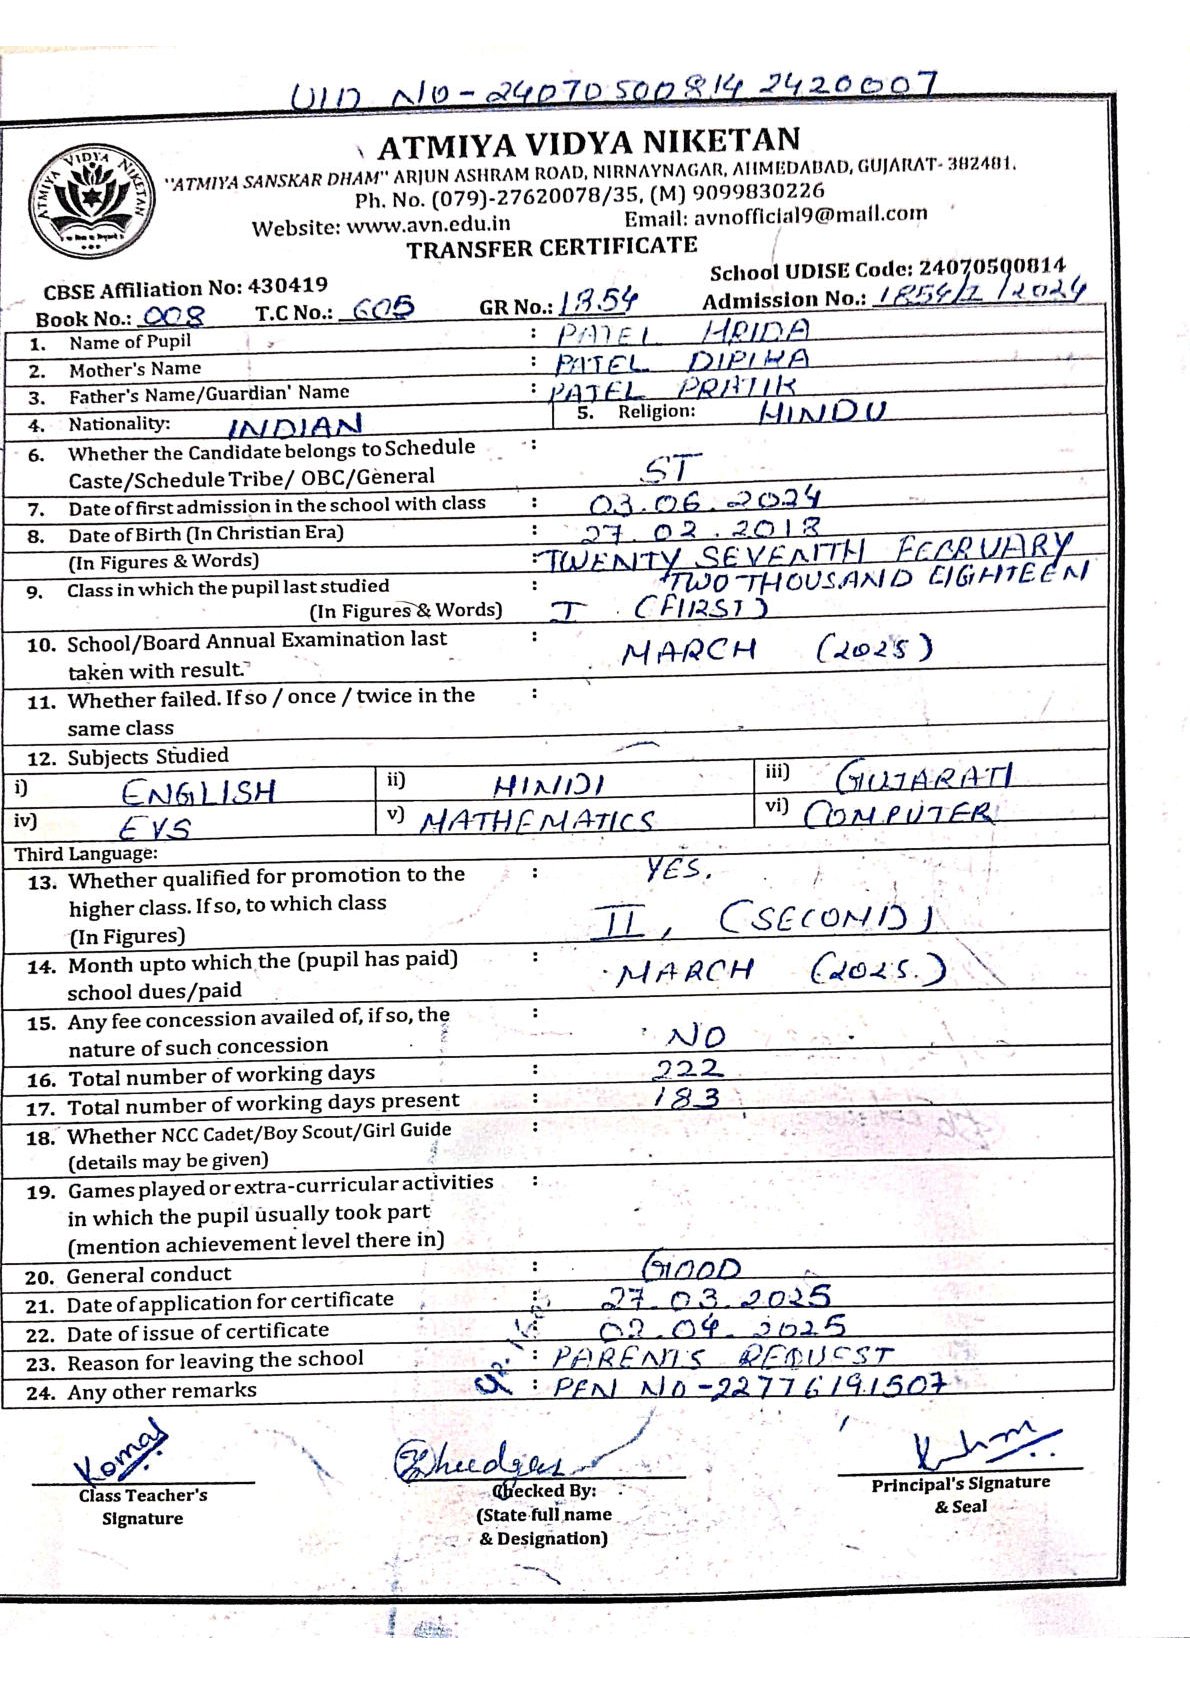 UID NO-24070500814 2420007
ATMIYA VIDYA NIKETAN
ATMIYA VIDYA NIKETAN
"ATMIYA SANSKAR DHAM" ARJUN ASHRAM ROAD, NIRNAYNAGAR, AHMEDABAD, GUJARAT- 382481.
Ph. No. (079)-27620078/35, (M) 9099830226
Website: www.avn.edu.in Email: avnofficial9@mail.com
TRANSFER CERTIFICATE
CBSE Affiliation No: 430419 School UDISE Code: 24070500814
Book No.: 008 T.C No.: 605 GR No.: 1854 Admission No.: 1854/I/2024
1. Name of Pupil : PATEL HRIDA
2. Mother's Name : PATEL DIPIKA
3. Father's Name/Guardian' Name : PATEL PRATIK
4. Nationality: INDIAN 5. Religion: HINDU
6. Whether the Candidate belongs to Schedule :
Caste/Schedule Tribe/ OBC/General ST
7. Date of first admission in the school with class : 03.06.2024
8. Date of Birth (In Christian Era) : 27.02.2018
(In Figures & Words) : TWENTY SEVENTH FEBRUARY
TWO THOUSAND EIGHTEEN
9. Class in which the pupil last studied :
(In Figures & Words) I (FIRST)
10. School/Board Annual Examination last :
taken with result. MARCH (2025)
11. Whether failed. If so / once / twice in the :
same class
12. Subjects Studied
i) ENGLISH ii) HINDI iii) GUJARATI
iv) EVS v) MATHEMATICS vi) COMPUTER
Third Language:
13. Whether qualified for promotion to the : YES.
higher class. If so, to which class
(In Figures) II, (SECOND)
14. Month upto which the (pupil has paid) :
school dues/paid MARCH (2025.)
15. Any fee concession availed of, if so, the :
nature of such concession NO
16. Total number of working days : 222
17. Total number of working days present : 183
18. Whether NCC Cadet/Boy Scout/Girl Guide :
(details may be given)
19. Games played or extra-curricular activities :
in which the pupil usually took part
(mention achievement level there in)
20. General conduct : GOOD
21. Date of application for certificate : 27.03.2025
22. Date of issue of certificate : 02.04.2025
23. Reason for leaving the school : PARENTS REQUEST
24. Any other remarks : PEN NO-22776191507
Komal
Class Teacher's
Signature
Checked By:
(State full name
& Designation)
Principal's Signature
& Seal